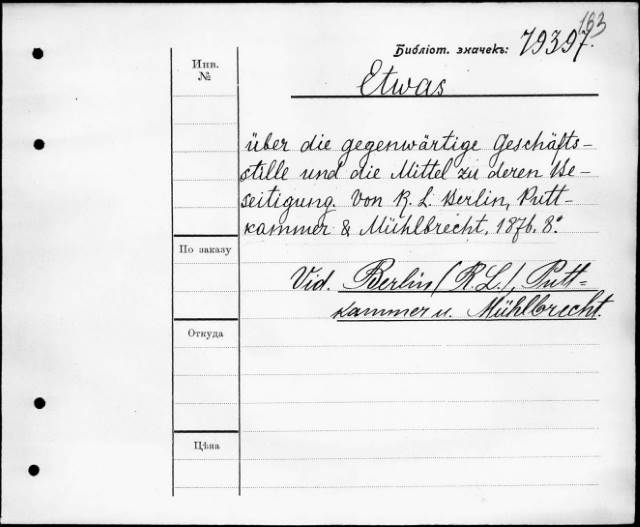 163
Библіот. значекъ: 79397.
Инв.
№
Etwas
über die gegenwärtige Geschäfts-
stille und die Mittel zu deren Be-
seitigung. Von R. L. Berlin, Putt-
kammer & Mühlbrecht, 1876. 8°.
По заказу
Vid. Berlin (R. L.), Putt-
kammer u. Mühlbrecht.
Откуда
Цѣна